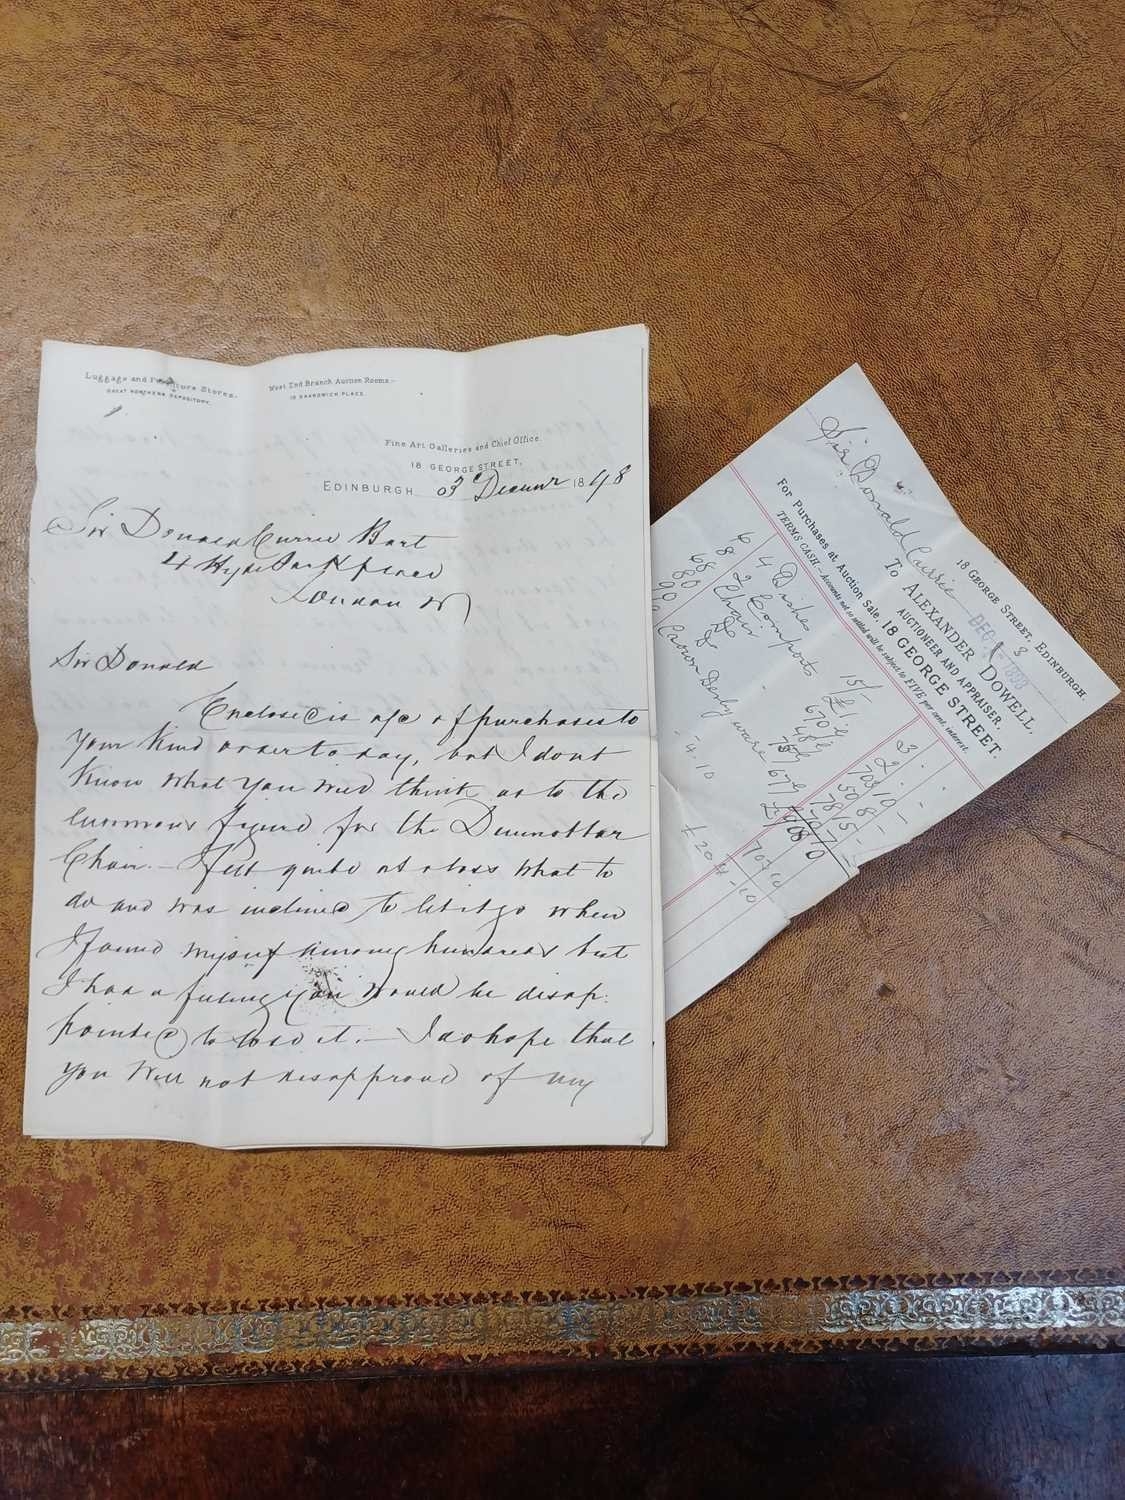 Luggage and Furniture Stores.
GREAT NORTHERN DEPOSITORY.
West End Branch Auction Rooms:-
18 SHANDWICK PLACE.
Fine Art Galleries and Chief Office.
18 GEORGE STREET,
EDINBURGH 03 Decemr 1898
Sir Donald Currie Bart
4 Hyde Park place
London W
Sir Donald
Enclosed is a/c of purchases to
your kind order to day, but I dont
know what you will think as to the
enormous figure for the Dunnottar
Chair.— I felt quite at a loss what to
do and was inclined to let it go when
I found myself among hundreds but
I had a feeling you would be disap:
pointed to lose it.— I do hope that
you will not disapprove of my
18 GEORGE STREET, EDINBURGH.
DEC 3 1898
Sir Donald Currie
To ALEXANDER DOWELL,
AUCTIONEER AND APPRAISER,
18 GEORGE STREET.
For Purchases at Auction Sale.
TERMS CASH—Accounts not so settled will be subject to FIVE per cent. interest.
6 4 Dishes 15/- 3 . -
8 2 Comports £1 2 . -
68 Chair
80 Do
90 Do
Crown Derby ware